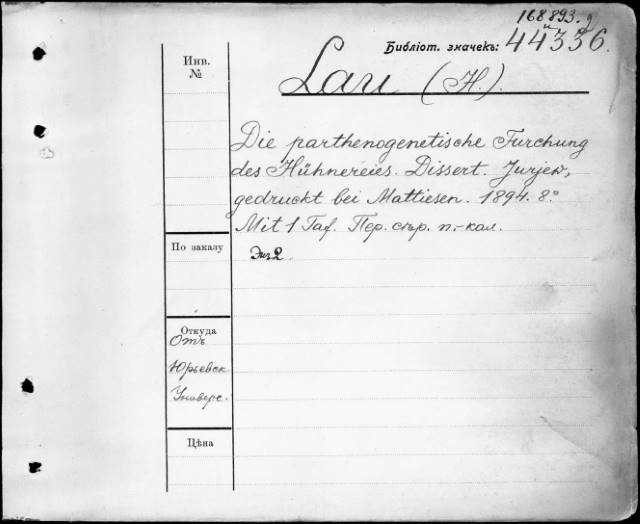 168893.
и
Библіот. значекъ: 44336.
Инв.
№
Lau (H.).
Die parthenogenetische Furchung
des Hühnereies. Dissert. Jurjew,
gedruckt bei Mattiesen. 1894. 8º.
Mit 1 Taf. Пер. стр. п.-кал.
По заказу
Экз 2.
Откуда
Отъ
Юрьевск.
Универс.
Цѣна